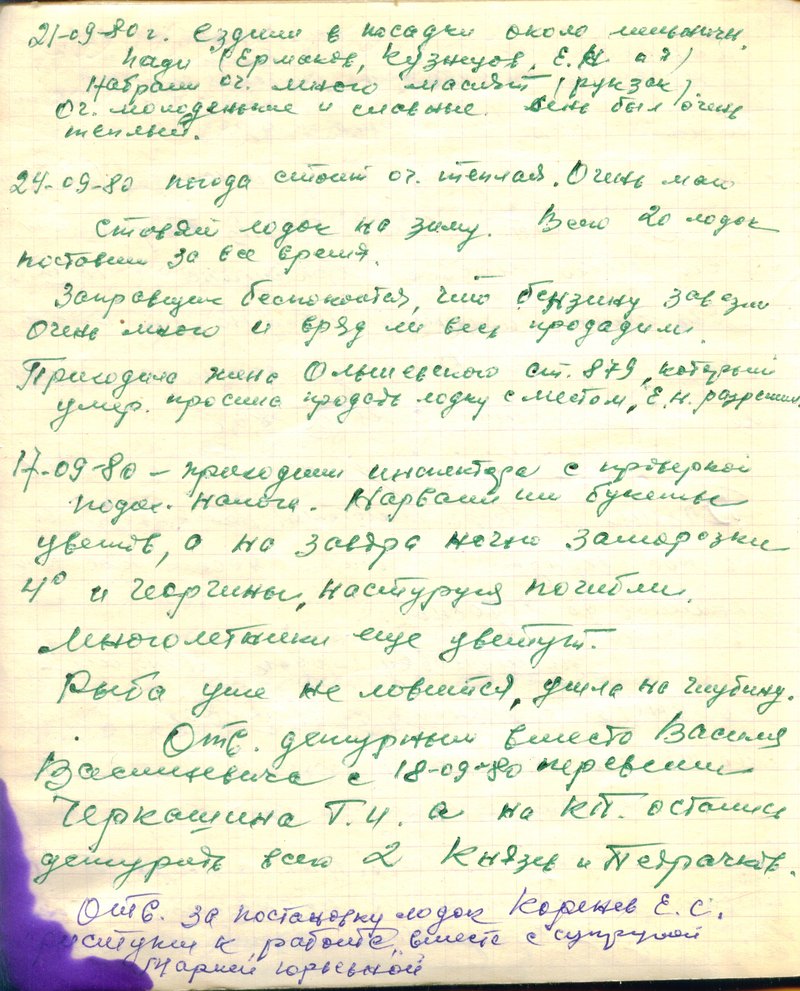 21-09-80 г. Ездили в посадки около мельничн.
пади (Ермаков, Кузнецов, Е.Н. и я)
Набрали оч. много маслят (рукзак)
Оч. молоденькие и славные. День был очень
теплый.
24-09-80 погода стоит оч. теплая. Очень мало
ставят лодок на зиму. Всего 20 лодок
поставили за все время.
Заправщик беспокоится, что бензину завезли
очень много и вряд ли весь продадим.
Приходила жена Ольшевского ст. 879, который
умер. просила продать лодку с местом, Е.Н. разрешил
17-09-80 – приходили инспектора с проверкой
подох. налога. Нарвали им букеты
цветов, а на завтра ночью заморозки
4° и георгины, настурция погибли.
Многолетники еще цветут.
Рыба уже не ловится, ушла на глубину.
Отв. дежурным вместо Василия
Васильевича с 18-09-80 перевели
Черкашина Г.И. а на КП. остались
дежурить всего 2 Князев и Петрачков.
Отв. за постановку лодок Коренев Е.С.
приступил к работе, вместе с супругой
Марией Юрьевной